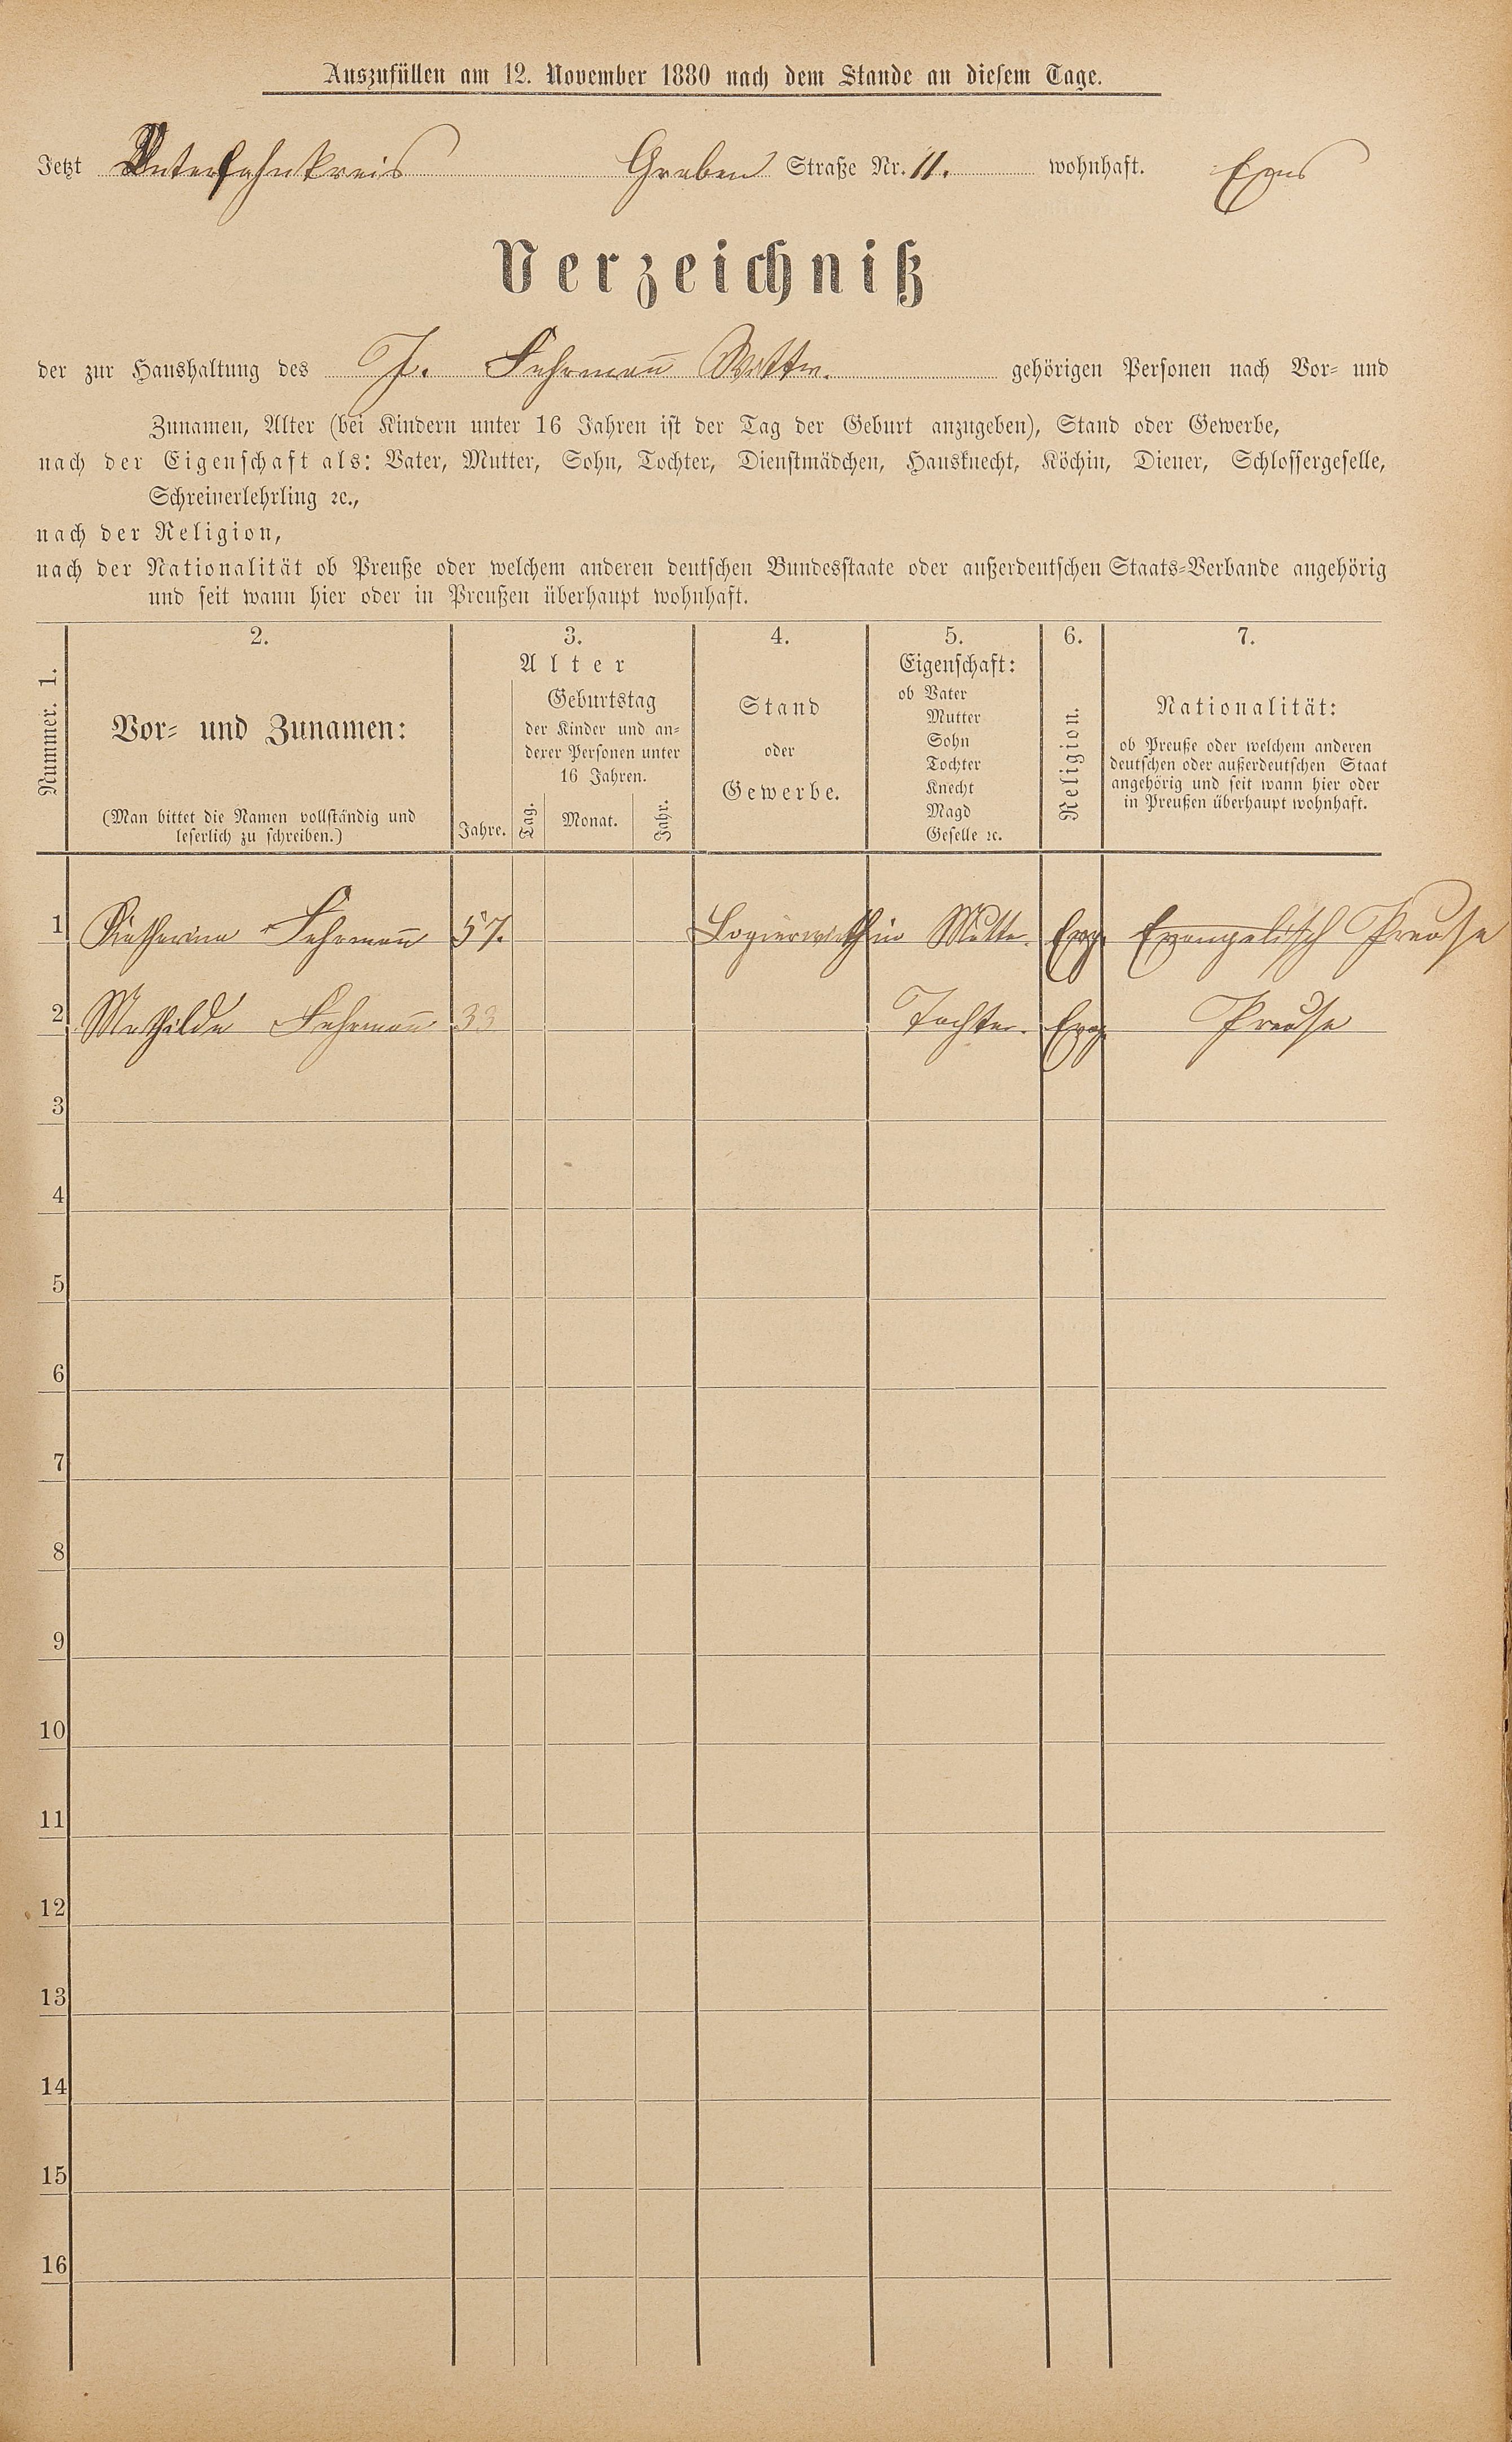 Auszufüllen am 12. November 1880 nach dem Stande an diesem Tage.
Jetzt Unterlahnkreis Graben Straße Nr. 11. wohnhaft. Ems
Verzeichniß
der zur Haushaltung des J. Fuhrman̅ Wittw. gehörigen Personen nach Vor- und
Zunamen, Alter (bei Kindern unter 16 Jahren ist der Tag der Geburt anzugeben), Stand oder Gewerbe,
nach der Eigenschaft als: Vater, Mutter, Sohn, Tochter, Dienstmädchen, Hausknecht, Köchin, Diener, Schlossergeselle,
Schreinerlehrling ꝛc.,
nach der Religion,
nach der Nationalität ob Preuße oder welchem anderen deutschen Bundesstaate oder außerdeutschen Staats-Verbande angehörig
und seit wann hier oder in Preußen überhaupt wohnhaft.
Nummer. 1.
2.
Vor- und Zunamen:
(Man bittet die Namen vollständig und
leserlich zu schreiben.)
3.
Alter
Jahre.
Geburtstag
der Kinder und an-
derer Personen unter
16 Jahren.
Tag. Monat. Jahr.
4.
Stand
oder
Gewerbe.
5.
Eigenschaft:
ob Vater
Mutter
Sohn
Tochter
Knecht
Magd
Geselle ꝛc.
6.
Religion.
7.
Nationalität:
ob Preuße oder welchem anderen
deutschen oder außerdeutschen Staat
angehörig und seit wann hier oder
in Preußen überhaupt wohnhaft.
1 Katherina Fuhrman̅ 57. Logierwirthin Mutter. Evg. Evangelisch Preuse
2 Mathilde Fuhrman̅ 33 Tochter. Evg. Preuse
3
4
5
6
7
8
9
10
11
12
13
14
15
16